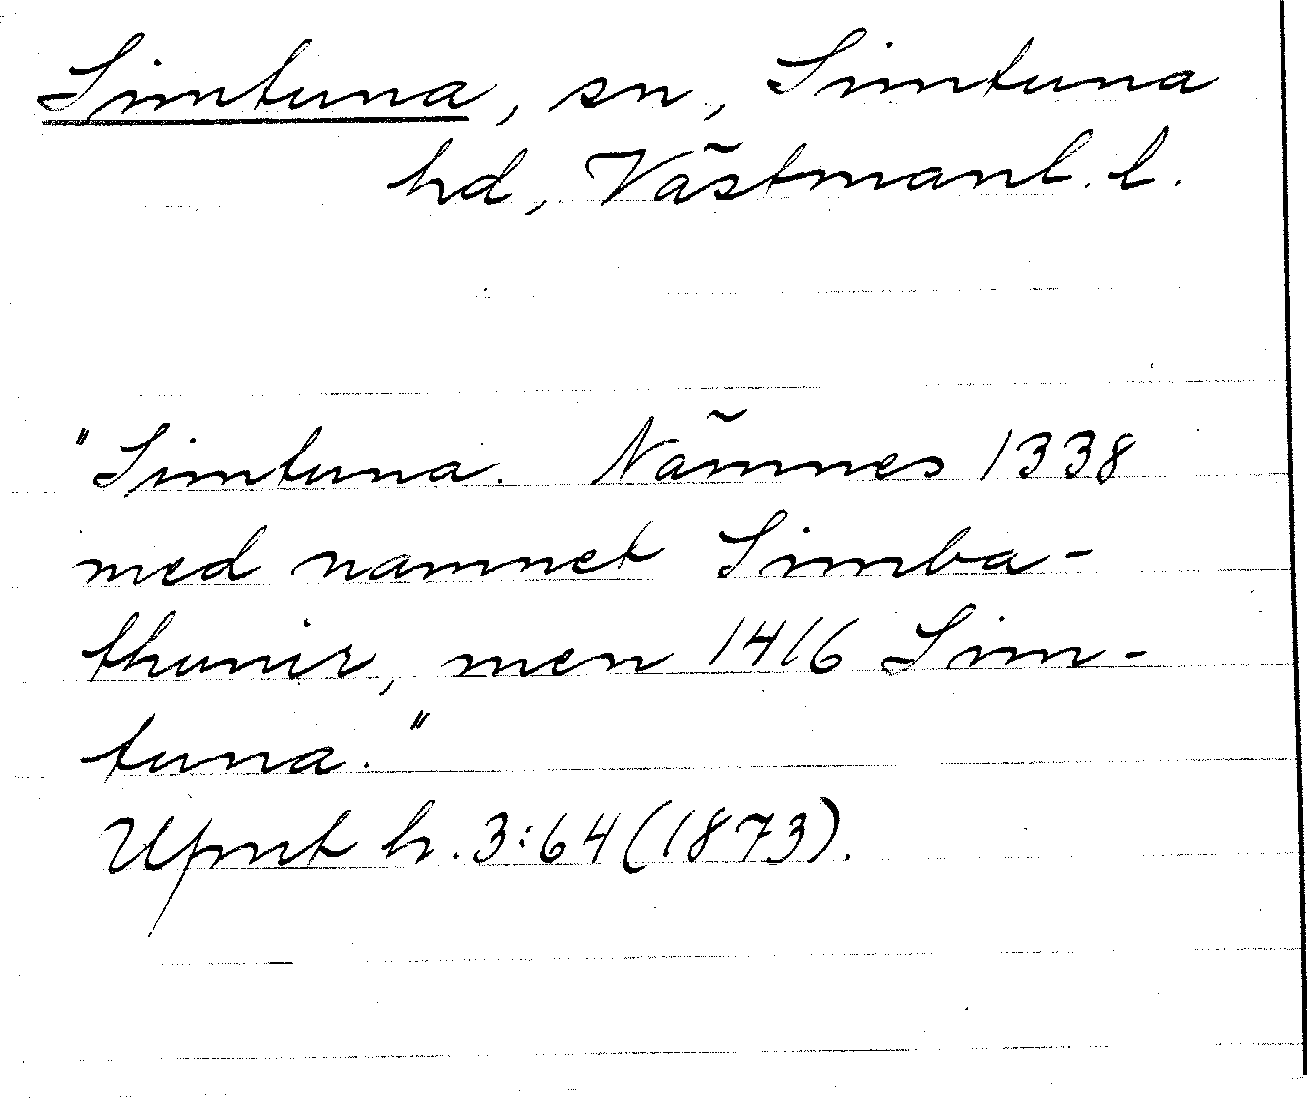 Simtuna, sn, Simtuna
hd, Västmanl. l.
"Simtuna. Nämnes 1338
med namnet Simba-
thunir, men 1416 Sim-
tuna."
Upmk h. 3:64 (1873).